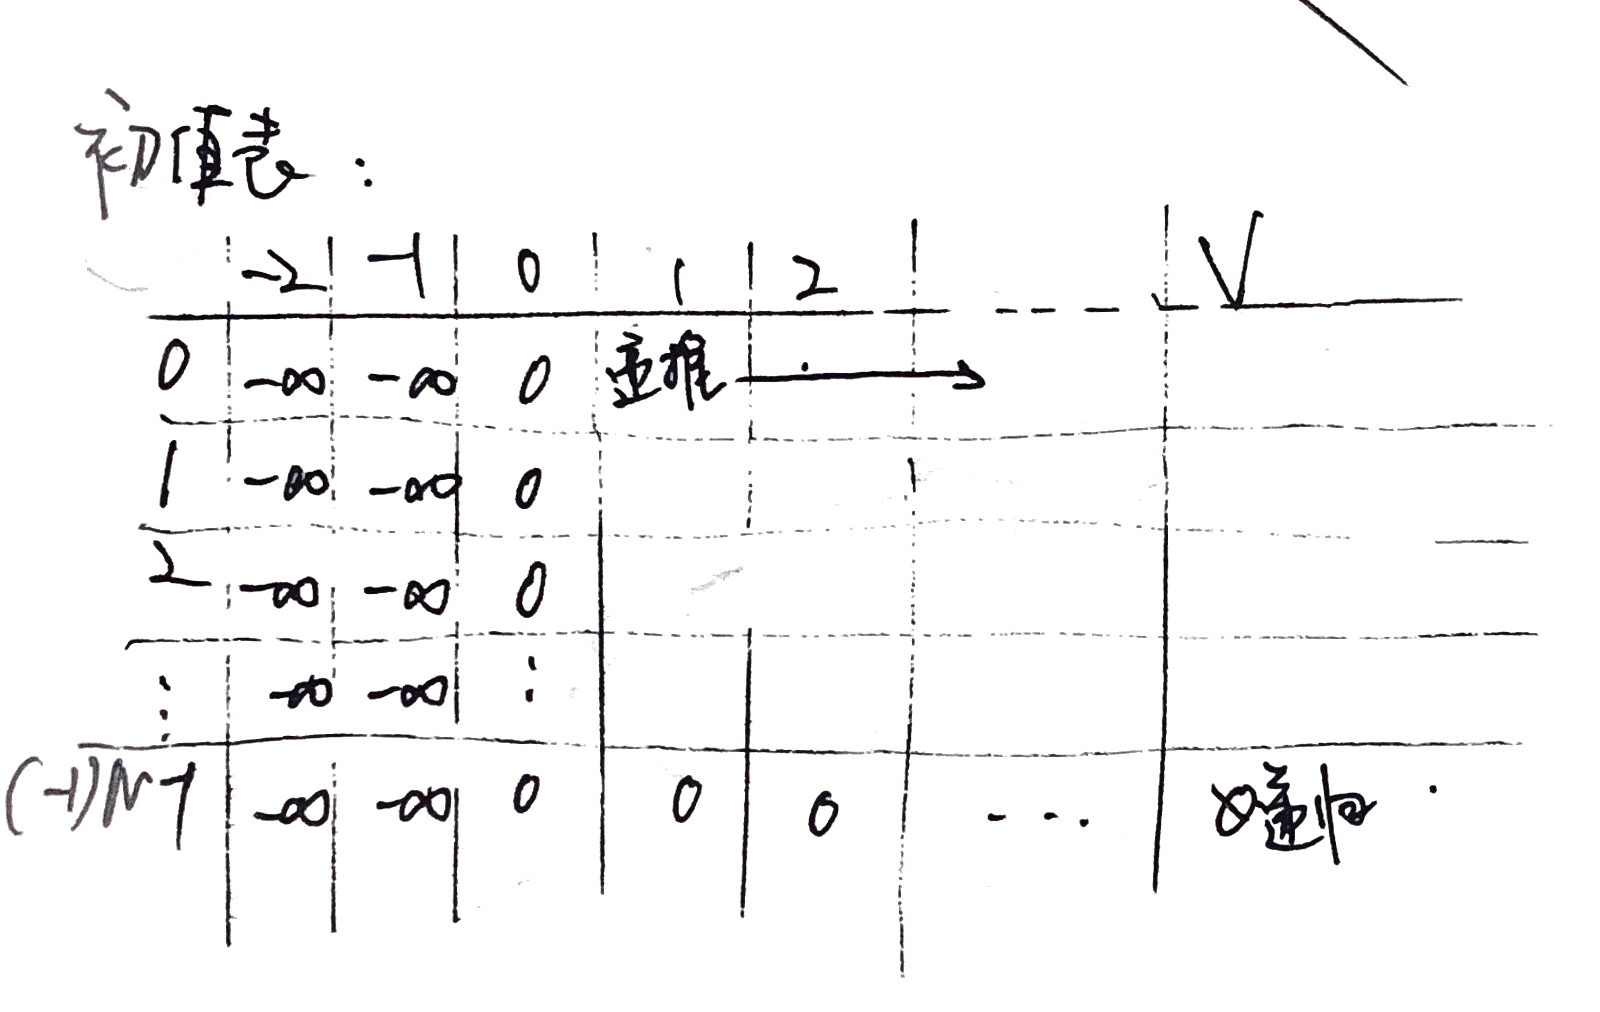 初值表：
-2 -1 0 1 2 --- V
0 -∞ -∞ 0 递推 →
1 -∞ -∞ 0
2 -∞ -∞ 0
⋮ -∞ -∞ ⋮
(-1)N-1 -∞ -∞ 0 0 0 ... 0递归